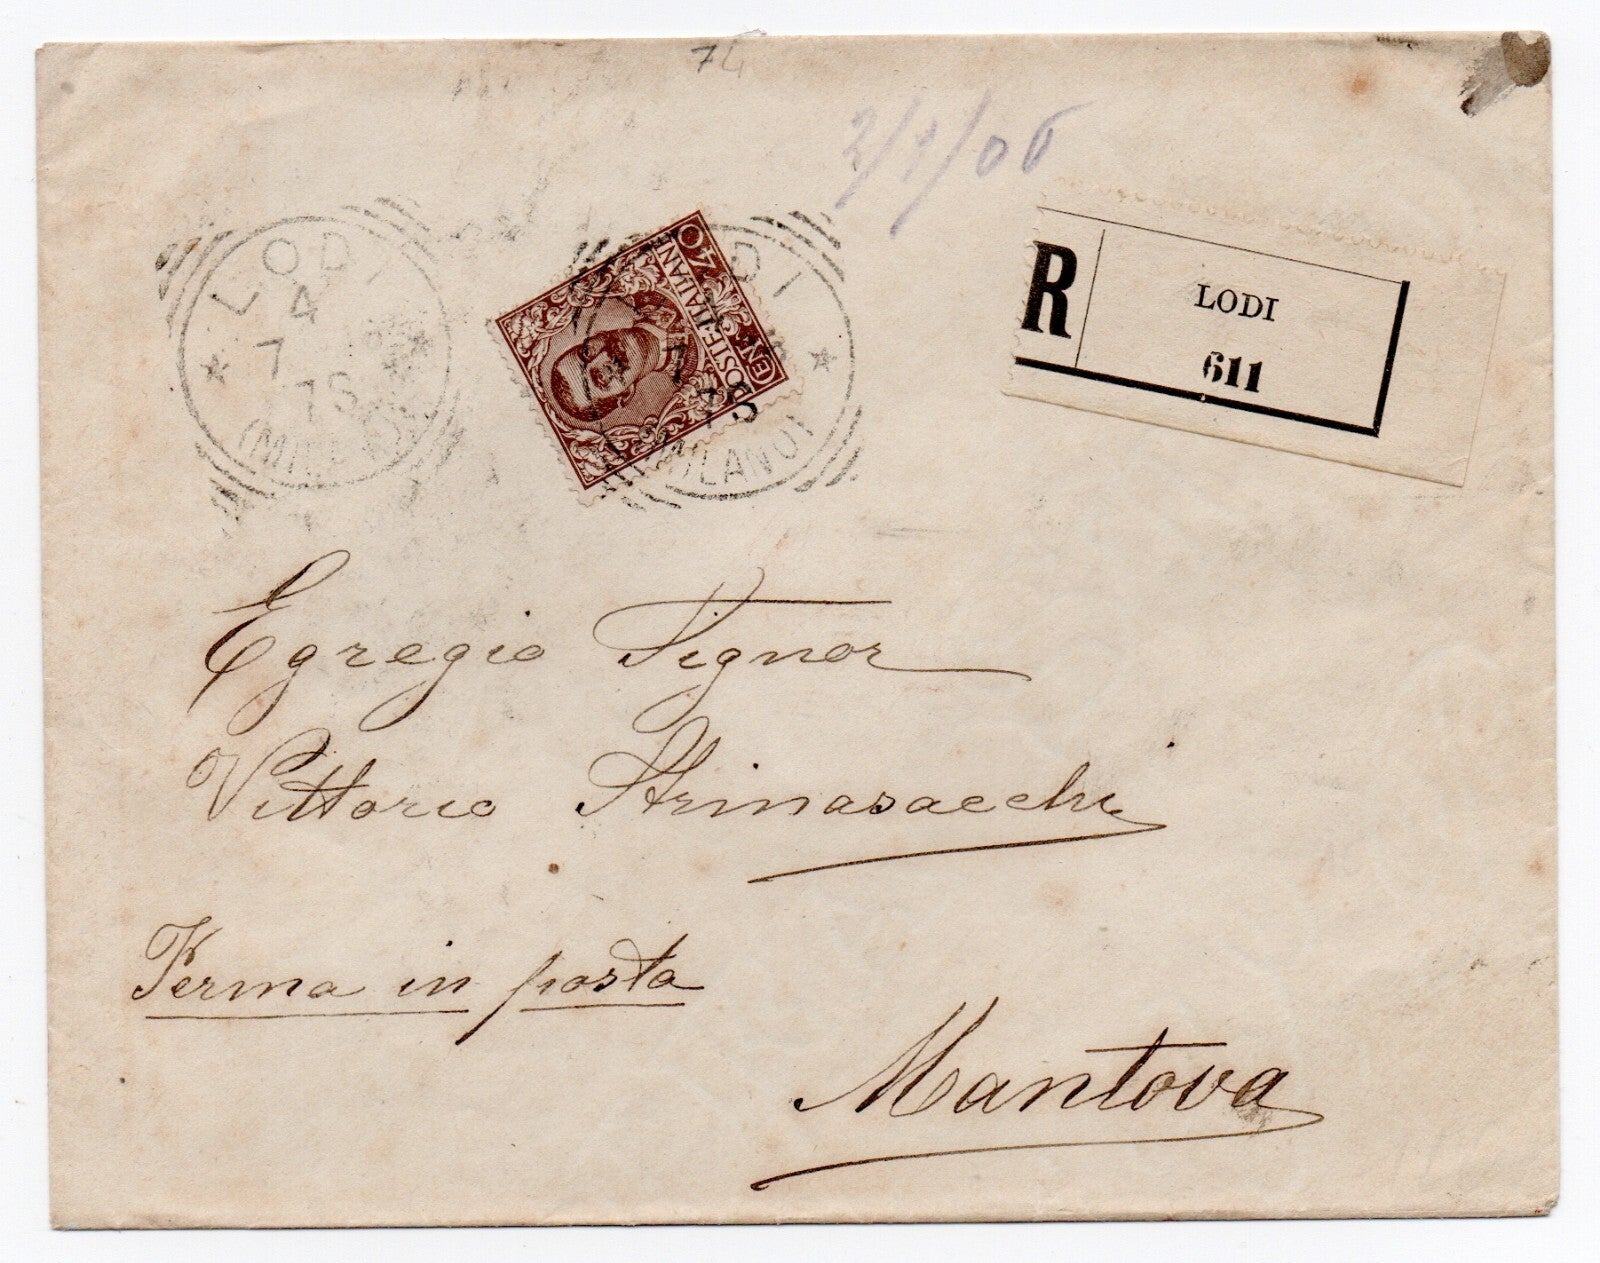 74
2/1/06
LODI
4
7
7S
LODI
7
7S
(MILANO)
POSTE ITALIANE
CEN. 40
R
LODI
611
Egregio Signor
Vittorio Strinasacchi
Ferma in posta
Mantova